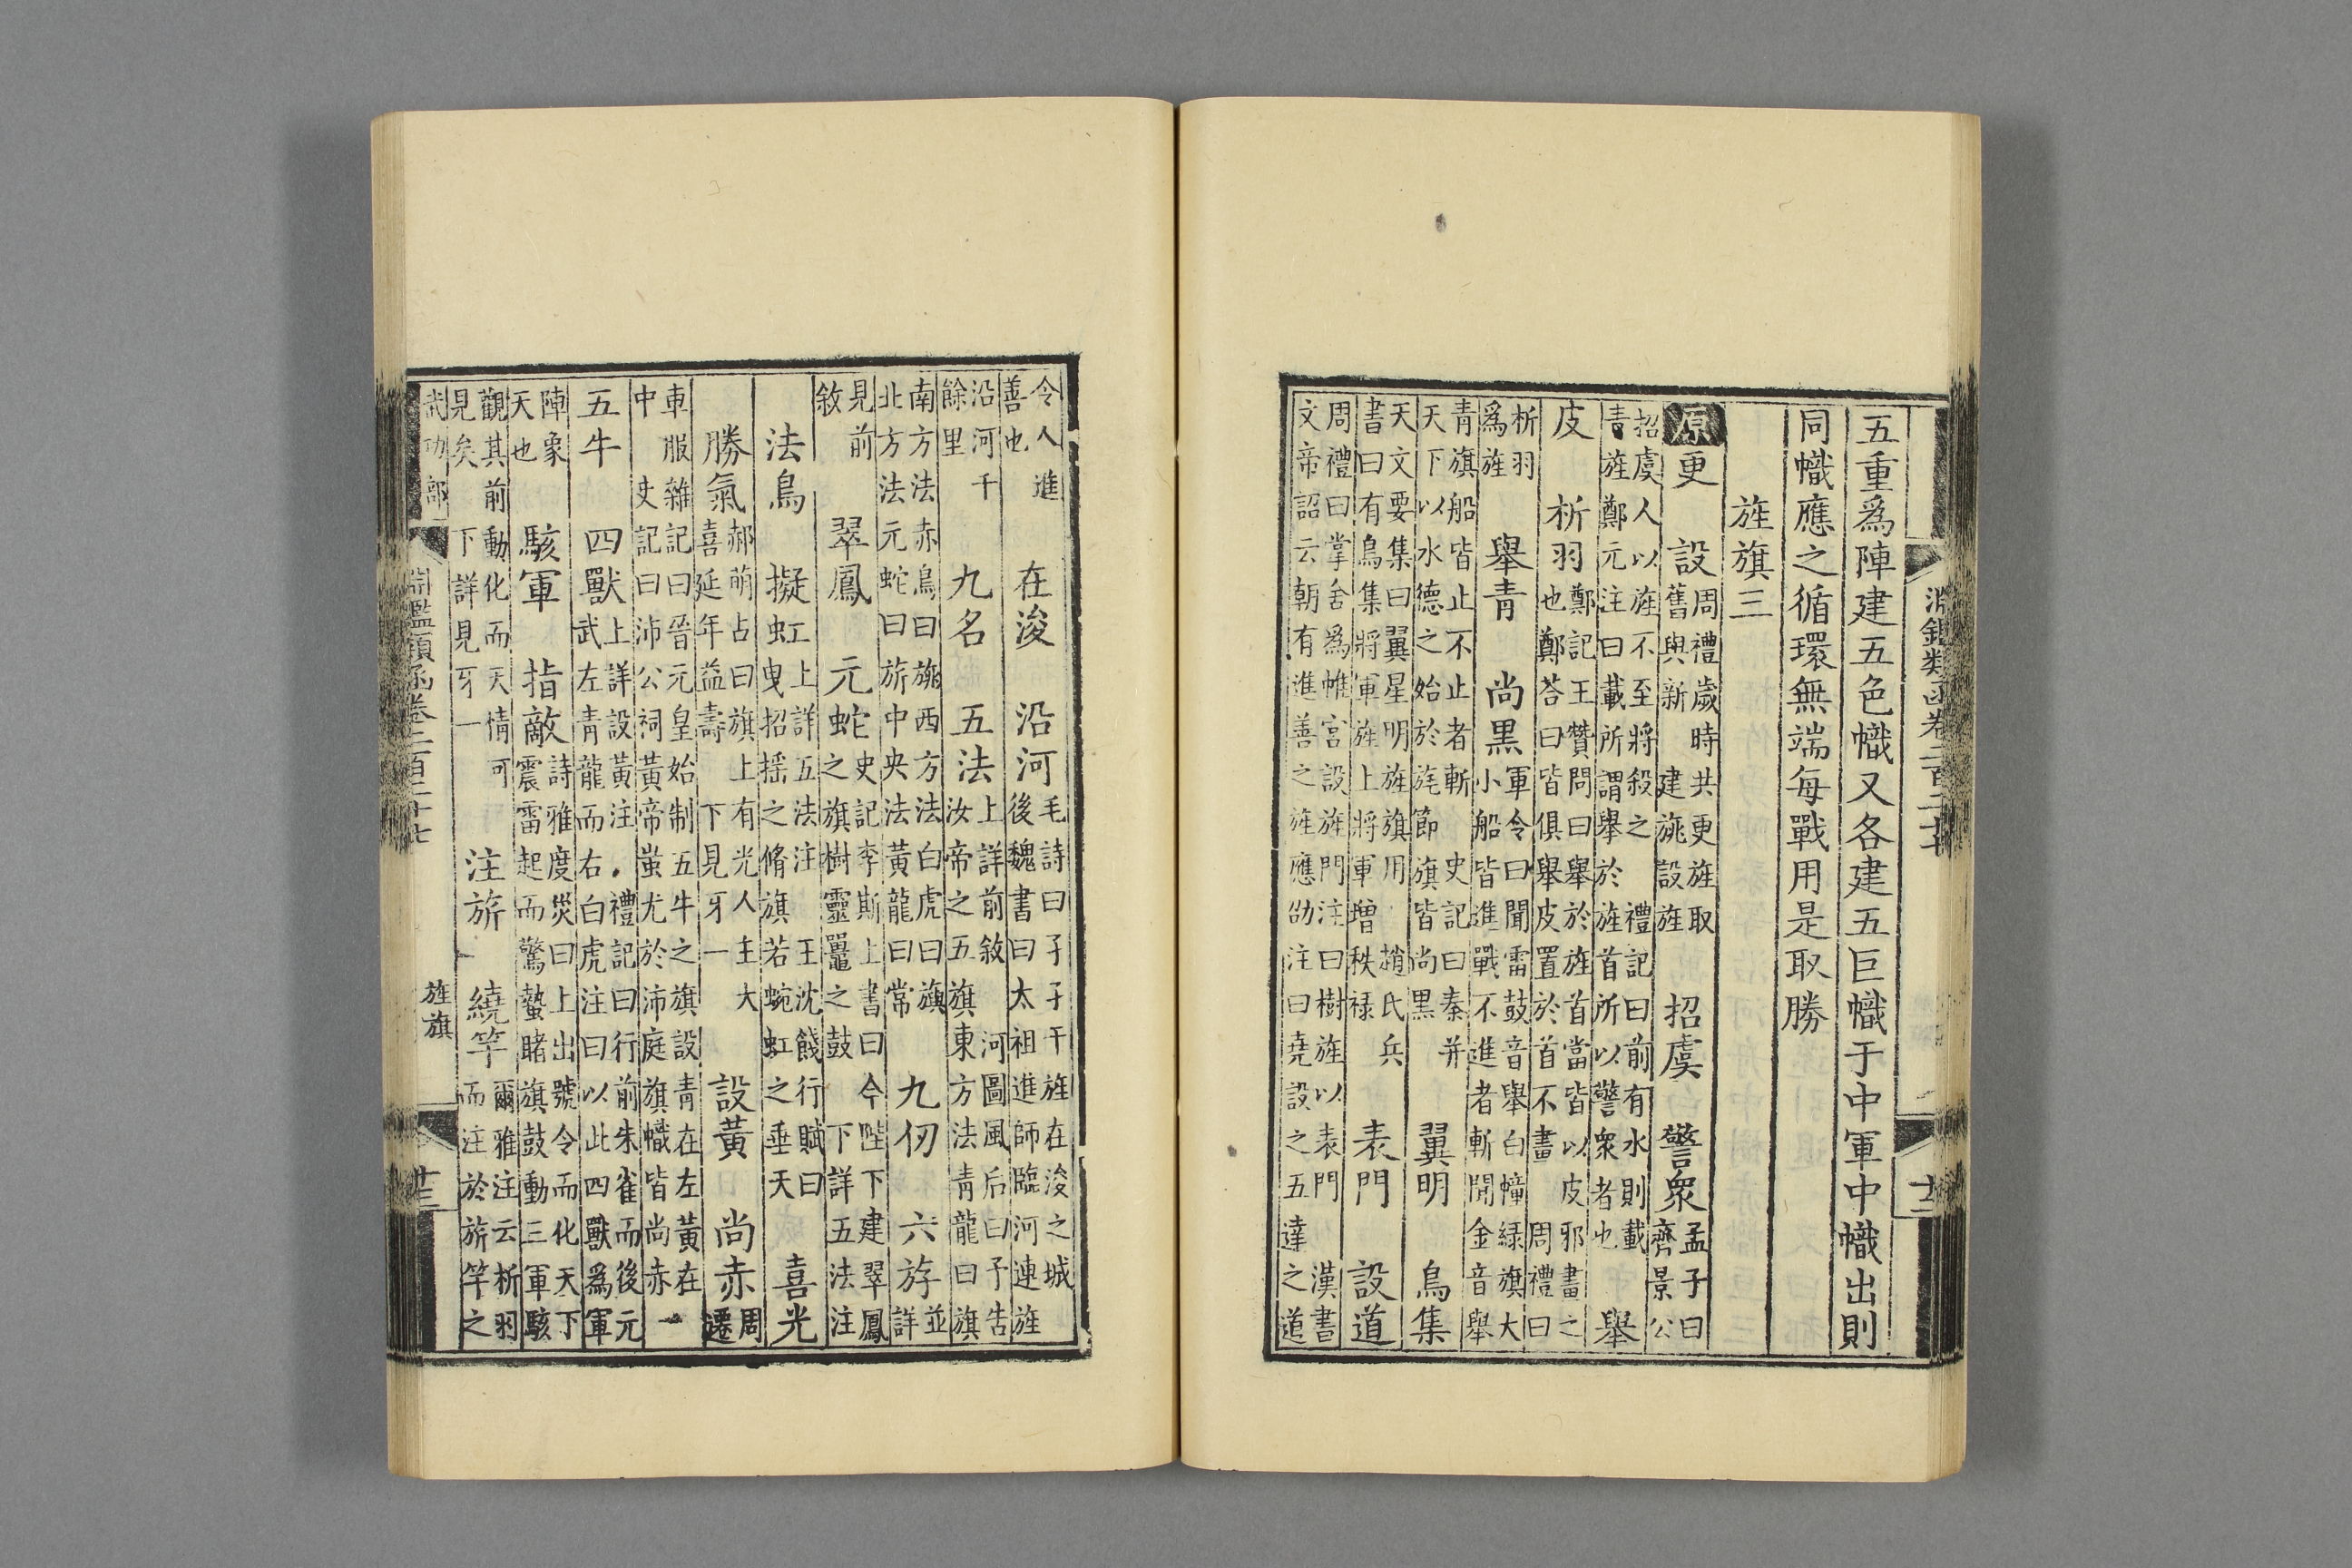 淵鑑類函卷二百二十七
五重爲陣建五色幟又各建五巨幟于中軍中幟出則
同幟應之循環無端每戰用是取勝
旌旗三
原更 設周禮歲時共更旌取舊與新 建旐設旌 招虞 警衆孟子曰齊景公
招虞人以旌不至將殺之 禮記曰前有水則載青旌鄭元注曰載所謂舉於旌首所以警衆者也 舉
皮 析羽鄭記王贊問曰舉於旌首當皆以皮邪畫之也鄭荅曰皆俱舉皮置於首不畫 周禮曰
析羽爲旌 舉青 尚黑軍令曰聞雷鼓音舉白幢綠旗大小船皆進戰不進者斬聞金音舉
青旗船皆止不止者斬 史記曰秦并天下以水德之始於旄節旗皆尚黑 翼明 鳥集
天文要集曰翼星明旌旗用 趙氏兵書曰有鳥集將軍旌上將軍增秩祿 表門 設道
周禮曰掌舍爲帷宮設旌門注曰樹旌以表門 漢書文帝詔云朝有進善之旌應劭注曰堯設之五達之道
令人進善也 在浚 沿河毛詩曰孑孑干旌在浚之城後魏書曰太祖進師臨河連旌
沿河千餘里 九名 五法上詳前敘 河圖風后曰予告汝帝之五旗東方法青龍曰旗
南方法赤鳥曰旐西方法白虎曰旗北方法元蛇曰旂中央法黃龍曰常 九仞 六斿並詳
見前敘 翠鳳 元蛇史記李斯上書曰今陛下建翠鳳之旗樹靈鼉之鼓 下詳五法注
法鳥 擬虹上詳五法注 王沈餞行賦曰曳招搖之脩旗若蜿虹之垂天 喜光
勝氣郝萌占曰旗上有光人主大喜延年益壽 下見牙一 設黃 尚赤周遷
車服雜記曰晉元皇始制五牛之旗設青在左黃在中 史記曰沛公祠黃帝蚩尤於沛庭旗幟皆尚赤 一
五牛 四獸上詳設黃注 禮記曰行前朱雀而後元武左青龍而右白虎注曰以此四獸爲軍
陣象天也 駭軍 指敵詩雅度災曰上出號令而化天下震雷起而驚蟄睹旗鼓動三軍駭
觀其前動化而天情可見矣 下詳見牙一 注旂 繞竿爾雅注云析羽而注於旂竿之
武功部 淵鑑類函卷二百二十七 旌旗 十三